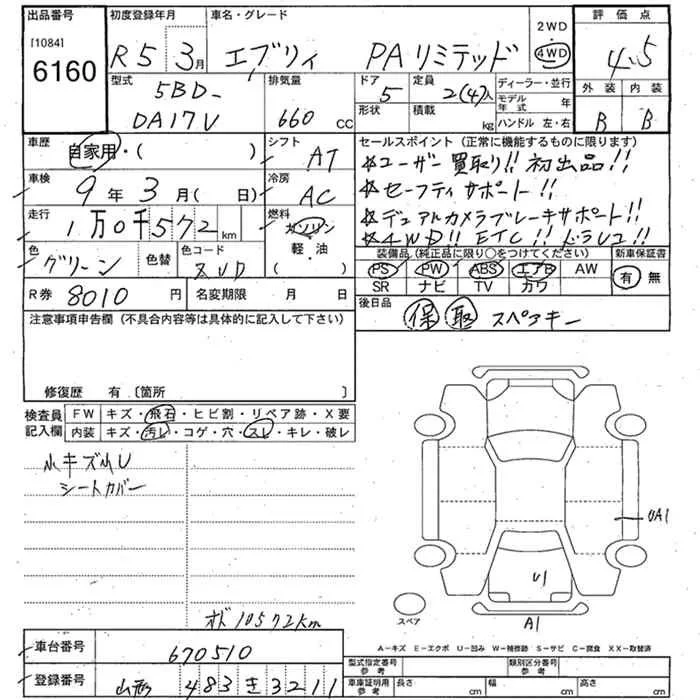 出品番号
[1084]
6160
初度登録年月
R5 3月
車名・グレード
エブリィ PAリミテッド
2WD
4WD
評価点
4.5
外装 内装
B B
型式
5BD-
DA17V
排気量
660 CC
ドア
5
定員
2(4)人
形状
積載
kg
ディーラー・並行
モデル年式 年
ハンドル 左・右
車歴
自家用・( )
シフト
AT
車検
9年 3月( 日)
冷房
AC
走行
1万0千572km
燃料
ガソリン
軽・油
( )
色
グリーン
色替
色コード
セールスポイント(正常に機能するものに限ります)
☆ユーザー買取り!! 初出品!!
☆セーフティサポート!!
☆デュアルカメラブレーキサポート!!
☆4WD!! ETC!! ドラレコ!!
装備品(純正品に限り○をつけてください)
PS PW ABS エアB AW
SR ナビ TV カワ
新車保証書
有 無
R券 8010円
名変期限 月 日
後日品
保 取 スペアキー
注意事項申告欄(不具合内容等は具体的に記入して下さい)
修復歴 有〔箇所 〕
検査員記入欄
FW キズ・飛石・ヒビ割・リペア跡・X要
内装 キズ・汚レ・コゲ・穴・スレ・キレ・破レ
小キズ小U
シートカバー
オド10572km
UA1
U1
A1
スペア
A-キズ E-エクボ U-凹み W-補修跡 S-サビ C-腐食 XX-取替済
車台番号
670510
登録番号
山形 483 き 3211
型式指定番号 参考
類別区分番号 参考
車庫証明用 参考
長さ cm
幅 cm
高さ cm